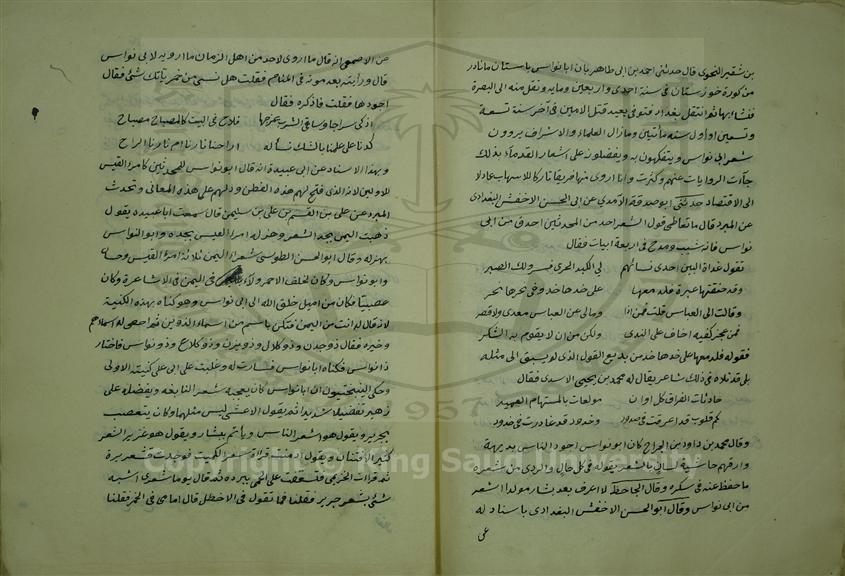 بن شقير النحوى قال حدثنى احمد بن ابى طاهر بان ابا نواس باستان ماناذر
من كورة خوزستان فى سنة احدى واربعين ومايه ونقل منه الى البصرة
فنشا بها ثم انتقل بغداد فتوفى بعيد قتل الامين فى آخر سنة تسعة
وتسعين او اول سنه مأتين ومازال العلماء والاشراف يروون
شعر ابى نواس ويتفكهون به ويفضلونه على اشعار القدماء بذلك
جآءت الروايات عنهم وكثرت وانا اروى منها فريقا تاركا للاسهاب عادلا
الى الاقتصاد حدثنى ابو صدقة الآمدي عن ابى الحسن الاخفش البغدادى
عن المبرد قال ما تعاطى قول الشعر احد من المحدثين احذق من ابى
نواس فانه شبب ومدح فى اربعة ابيات فقال
تقول غداة البين احدى نسائهم لى الكبد الحرى فسر ولك الصبر
وقد خنقتها عبرة فلدمعها على خدها خد وفى نحرها نحر
وقالت الى العباس قلت فمن اذا ومالى عن العباس معدى ولا قصر
فمن عجز كفيه اخاف على الندى ولكن من ان لا يقوم به الشكر
فقوله فلدمعها على خدها خد من بديع القول الذى لم يسبق الى مثله
بلى قد تلاه فى ذلك شاعر يقال له محمد بن يحيى الاسدى فقال
حادثات الفراق كل اوان مولعات بالمستهام العميد
كم قلوب قد اعرقت فى صدود وخدود قد غادرت فى خدود
وقال محمد بن داود بن الجراح كان ابو نواس اجود الناس بديهة
وارقهم حاشية لسانى بالشعر يقوله فى كل حال والردى من شعره
ما حفظ عنه فى سكره وقال الجاحظ لا اعرف بعد بشار مولدا اشعر
من ابى نواس وقال ابو الحسن الاخفش البغدادى باسناد له
عن
عن الاصمعى انه قال ما اروى لاحد من اهل الزمان ما ارويه لابى نواس
قال ورأيته بعد موته فى المنام فقلت هل نسى من خمرياتك شئ فقال
اجودها فقلت فاذكره فقال
اذكى سراجا وساقى الشرب يمزجها فلاح فى البيت كالمصباح مصباح
كدنا على علمنا بالشك نسأله اراحنا نارنا ام نارنا الراح
وبهذا الاسناد عن ابى عبيدة انه قال ابو نواس للمحدثين كامرء القيس
للاولين لانه الذى فتح لهم هذه الفطن ودلهم على هذه المعانى وتحدث
المبرد عن على بن القسم بن على بن سليمن قال سمعت ابا عبيده يقول
ذهبت اليمن بجد الشعر وهزله امرء القيس بجده وابو النواس
بهزله وقال ابو الحسن الطوسى شعراء اليمن ثلاثة امرء القيس وحسان
وابو نواس وكان لخلف الاحمر ولاء فى اليمن فى الاشاعرة وكان
عصبيا فكان من اميل خلق الله الى ابى نواس وهو كناه بهذه الكنية
لانه قال له انت من اليمن فتكنى باسم من اسماء الذوين ثم احصى له اسماءهم
وخيره فقال ذو جدن وذو كلال وذو يزن وذو كلاع وذو نواس فاختار
ذا نواس فكناه ابا نواس فسارت له وغلبت على ابى على كنيته الاولى
وحكى النيبختيون ان ابا نواس كان يعجبه شعر النابغه ويفضله على
زهير تفضيلا شديدا ثم يقول الاعشى ليس مثلهما وكان يتعصب
بجرير ويقول هو اشعر الناس وياتم ببشار ويقول هو غزير الشعر
كثير الافتنان ويقول ادمنت قرأة شعر الكميت فوجدت قشعريرة
ثم قرأت الخزيمى فتشققت على الحمى ببرده ثم قال يوما شعرى اشبه
شئ بشعر جرير فقلنا فما تقول فى الاخطل قال امامى فى الخمر فقلنا
Copyright © King Saud University
1957